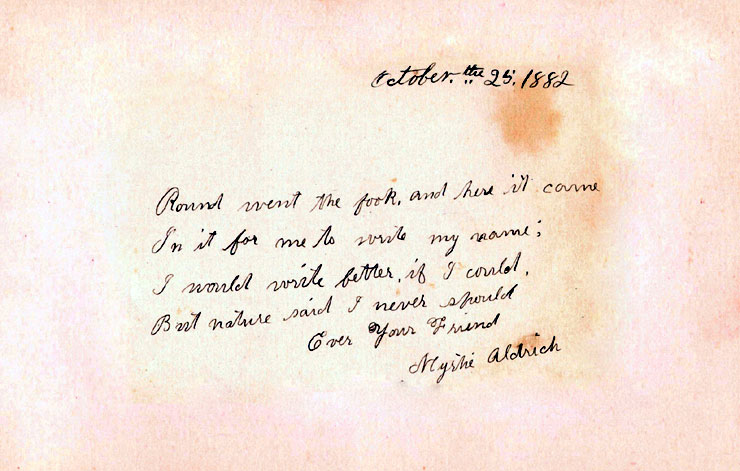 October. the 25. 1882
Round went the fook, and here it came
In it for me to write my name;
I would write better, if I could,
But nature said I never should
Ever Your Friend
Aldrich